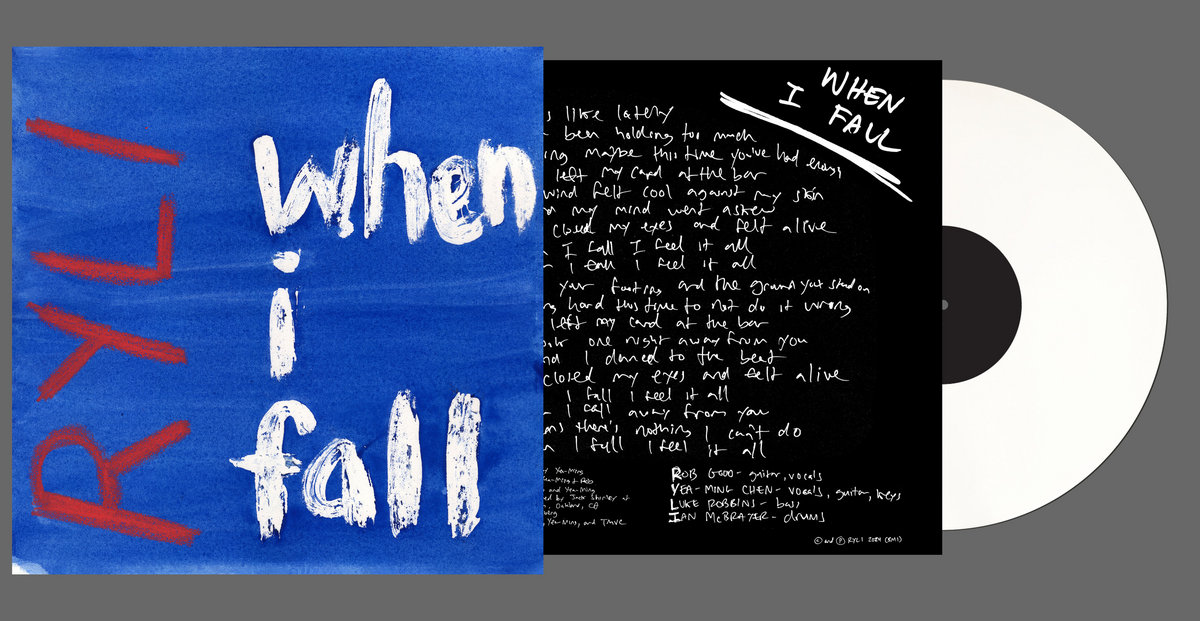 RYLI
when
i
fall
WHEN
I FALL
s like lately
been holding too much
ing maybe this time you've had enough
left my card at the bar
wind felt cool against my skin
my mind went askew
closed my eyes and felt alive
I fall I feel it all
I fall I feel it all
your footing and the ground you stand on
ng hard this time to not do it wrong
left my card at the bar
one night away from you
nd I danced to the beat
closed my eyes and felt alive
I fall I feel it all
I fall away from you
ms there's nothing I can't do
n I fall I feel it all
Yea-Ming
Yea-Ming & Rob
and Yea-Ming
ed by Jack Shirley at
Oakland, CA
berg
Yea-Ming, and
ROB GOOD - guitar, vocals
YEA-MING CHEN - vocals, guitar, keys
LUKE ROBBINS - bass
IAN McBRAYER - drums
© and ℗ RYLI 2024 (BMI)